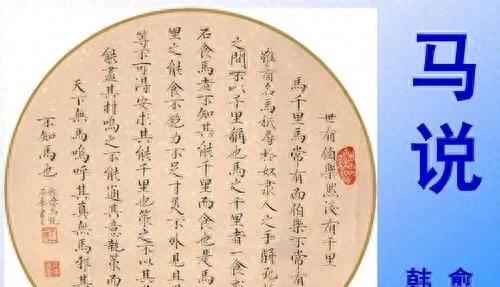 马说
韩愈
世有伯樂然後有千里
馬千里馬常有而伯樂不常有
雖有名馬祗辱於奴隸人之手駢死
之間不以千里稱也馬之千里者一食
石食馬者不知其能千里而食也是馬
里之能食不飽力不足才美不外見且
等不可得安求其能千里也策之不以其
能盡其材鳴之不能通其意執策而
天下無馬嗚呼其真無馬邪其
不知馬也